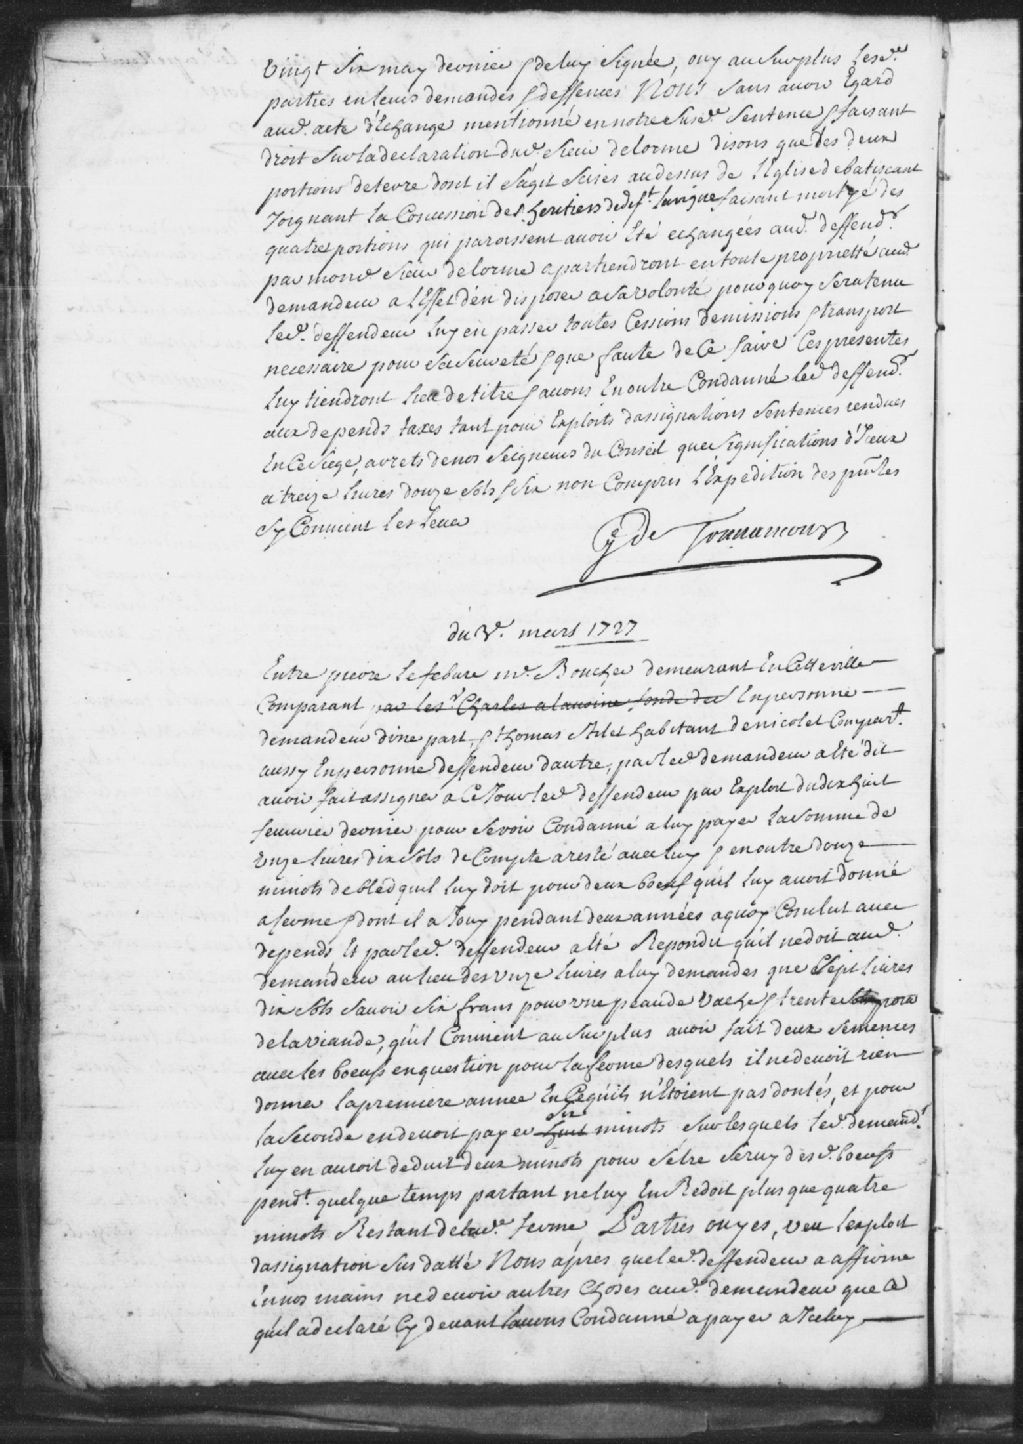 vingt six may dernier & de luy signée, ouy au surplus lesd.
parties en leurs demandes & deffences Nous sans avoir Egard
aud. acte d'Echange mentionné en notre susd. sentence & faisant
droit sur la declaration dud. sieur delorme disons que les deux
portions de terre dont il s'agit sises au dessus de l'Eglise de batiscant
Joignant la Concession des heritiers de def.t lavigne faisant moityé des
quatre portions qui paroissent avoir Eté echangées aud. deffend.r
par mond. sieur delorme apartiendront en toute proprietté aud.
demandeur a l'Effet d'en disposer a sa volonté pourquoy sera tenu
led. deffendeur luy en passer toutes Cessions demissions & transport
necessaire pour sa sureté & que faute de Ce faire Ces presentes
luy tiendront lieu de titre & avons En outre Condanné led. deffend.r
aux depends taxes tant pour Exploits dassignations sentences rendues
En Ce siege, arrets de nos seigneurs du Conseil que significations d'Iceux
a treize livres douze sols & six non Compris l'Expedition des p.ntes
sy Convient les lever
G de Tonnancour
du 3e. mars 1727
Entre pierre lefebvre m.e Boucher demeurant En Cette ville
Comparant par les.r Charles alavoine fondé de En personne
demandeur d'une part, & thomas Stilet habitant de nicolet Compar.t
aussy En personne deffendeur d'autre, par led. demandeur a Eté dit
avoir fait assigner a Ce Jour led. deffendeur par Exploit du dix huit
fevrier dernier pour se voir Condanné a luy payer la somme de
Unze livres dix sols de Compte aresté avec luy & en outre douze
minots de bled quil luy doit pour deux boeufs quil luy avoit donné
a ferme & dont il a Jouy pendant deux années a quoy Conclut avec
depends Et par led. deffendeur a Eté Repondu qu'il ne doit aud.
demandeur au lieu des unze livres a luy demandes que sept livres
dix sols savoir six francs pour une peau de vache & trente sols pour
de la viande, qu'il Convient au surplus avoir fait deux semences
avec les boeufs en question pour la ferme desquels il ne devoit rien
donner la premiere annee En Ce qu'ils n'Etoient pas dontés, et pour
la seconde en devoit payer huit six minots sur lesquels led. demand.r
luy en auroit deduit deux minots pour s'être servy desd. boeufs
pend.t quelque temps partant ne luy En Redoit plus que quatre
minots Restant de lad. ferme, Parties ouyes, veu lexploit
dassignation sus datté Nous apres que led. deffendeur a affirmé
En nos mains ne devoir autres Choses aud. demandeur que Ce
quil a declaré Cy devant lavons Condanné a payer a Iceluy